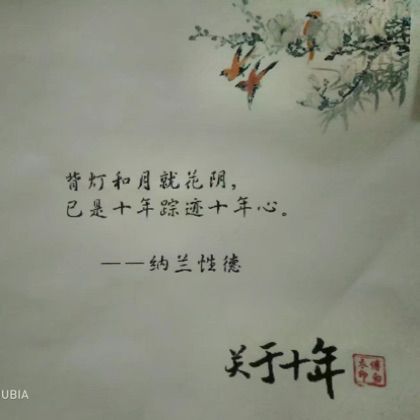 背灯和月就花阴，
已是十年踪迹十年心。
——纳兰性德
关于十年
UBIA